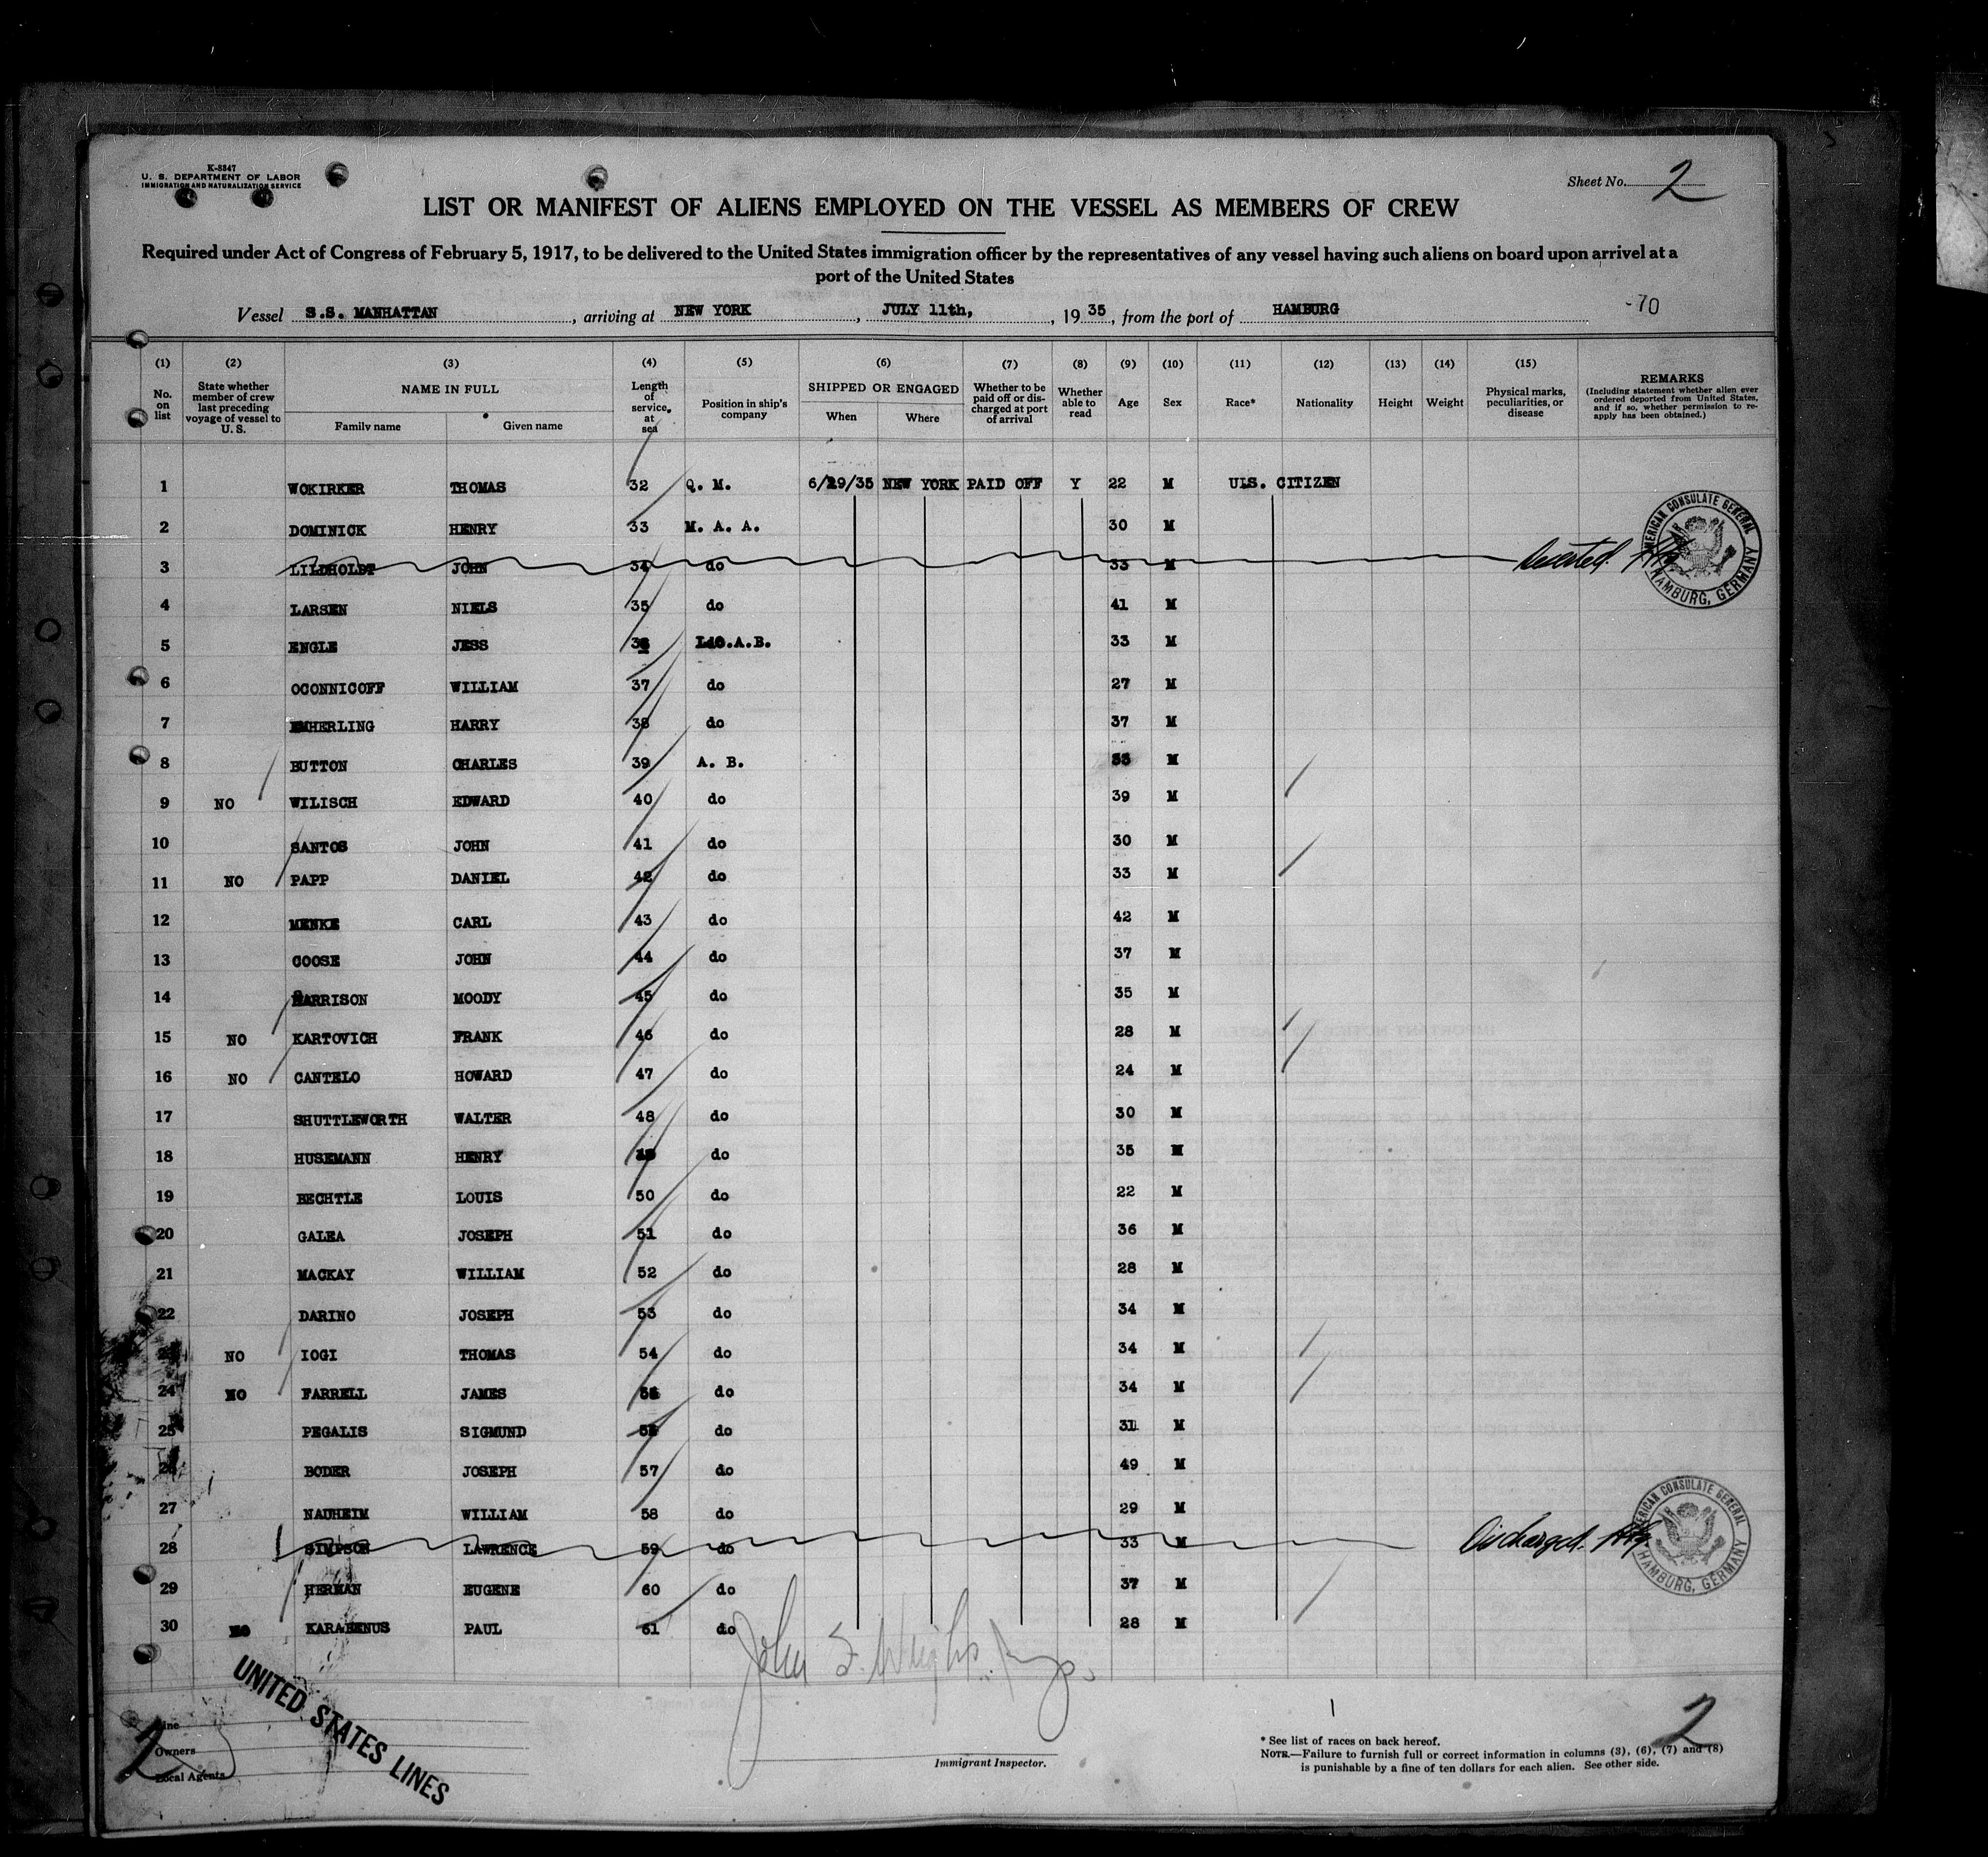 K-8347
U. S. DEPARTMENT OF LABOR
IMMIGRATION AND NATURALIZATION SERVICE
Sheet No. 2
LIST OR MANIFEST OF ALIENS EMPLOYED ON THE VESSEL AS MEMBERS OF CREW
Required under Act of Congress of February 5, 1917, to be delivered to the United States immigration officer by the representatives of any vessel having such aliens on board upon arrival at a
port of the United States
Vessel S.S. MANHATTAN, arriving at NEW YORK, JULY 11th, 1935, from the port of HAMBURG -70
(1) (2) (3) (4) (5) (6) (7) (8) (9) (10) (11) (12) (13) (14) (15)
No. on list State whether member of crew last preceding voyage of vessel to U. S. NAME IN FULL Family name Given name Length of service at sea Position in ship's company SHIPPED OR ENGAGED When Where Whether to be paid off or discharged at port of arrival Whether able to read Age Sex Race* Nationality Height Weight Physical marks, peculiarities, or disease REMARKS (Including statement whether alien ever ordered deported from United States, and if so, whether permission to reapply has been obtained.)
1 WOKIRKER THOMAS 32 Q. M. 6/29/35 NEW YORK PAID OFF Y 22 M U.S. CITIZEN
2 DOMINICK HENRY 33 M. A. A. 30 M
3 LILDHOLDT JOHN 34 do 33 M Deserted.
4 LARSEN NIELS 35 do 41 M
5 ENGLE JESS 36 A.B. 33 M
6 OCONNICOFF WILLIAM 37 do 27 M
7 EMHERLING HARRY 38 do 37 M
8 BUTTON CHARLES 39 A. B. M
9 NO WILISCH EDWARD 40 do 39 M
10 SANTOS JOHN 41 do 30 M
11 NO PAPP DANIEL 42 do 33 M
12 MENKE CARL 43 do 42 M
13 GOOSE JOHN 44 do 37 M
14 HARRISON MOODY 45 do 35 M
15 NO KARTOVICH FRANK 46 do 28 M
16 NO CANTELO HOWARD 47 do 24 M
17 SHUTTLEWORTH WALTER 48 do 30 M
18 HUSEMANN HENRY do 35 M
19 BECHTLE LOUIS 50 do 22 M
20 GALEA JOSEPH 51 do 36 M
21 MACKAY WILLIAM 52 do 28 M
22 DARINO JOSEPH 53 do 34 M
23 NO IOGI THOMAS 54 do 34 M
24 NO FARRELL JAMES 55 do 34 M
25 PEGALIS SIGMUND 56 do 31 M
26 BODER JOSEPH 57 do 49 M
27 NAUHEIM WILLIAM 58 do 29 M
28 SIMPSON LAWRENCE 59 do 33 M Discharged.
29 HERMAN EUGENE 60 do 37 M
30 NO KARABENUS PAUL 61 do 28 M
AMERICAN CONSULATE GENERAL HAMBURG, GERMANY
AMERICAN CONSULATE GENERAL HAMBURG, GERMANY
UNITED STATES LINES
Line
Owners
Local Agents
2
Immigrant Inspector.
* See list of races on back hereof.
NOTE.—Failure to furnish full or correct information in columns (3), (6), (7) and (8)
is punishable by a fine of ten dollars for each alien. See other side.
2